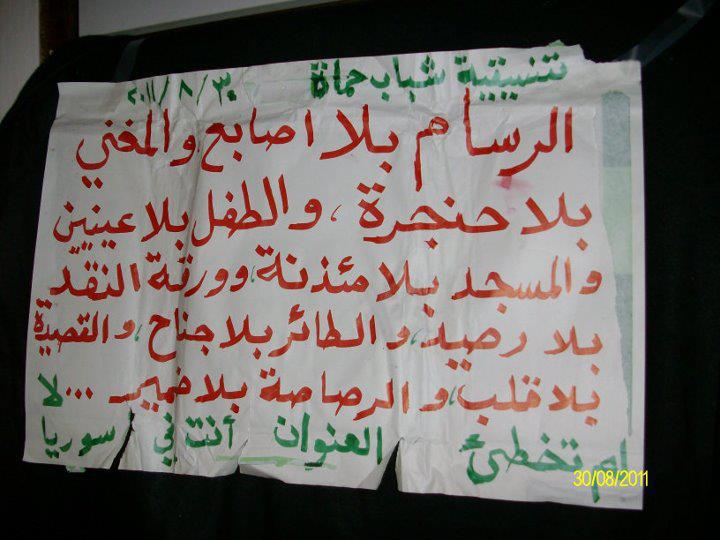 تنسيقية شباب حماة ٣٠/٨/٢٠١١
الرسام بلا اصابع والمغني
بلا حنجرة، والطفل بلا عينين
والمسجد بلا مئذنة، وورقة النقد
بلا رصيد، والطائر بلا جناح، والقصيدة
بلا قلب، والرصاصة بلا ضمير... لا
لم تخطئ العنوان أنت في سوريا
30/08/2011